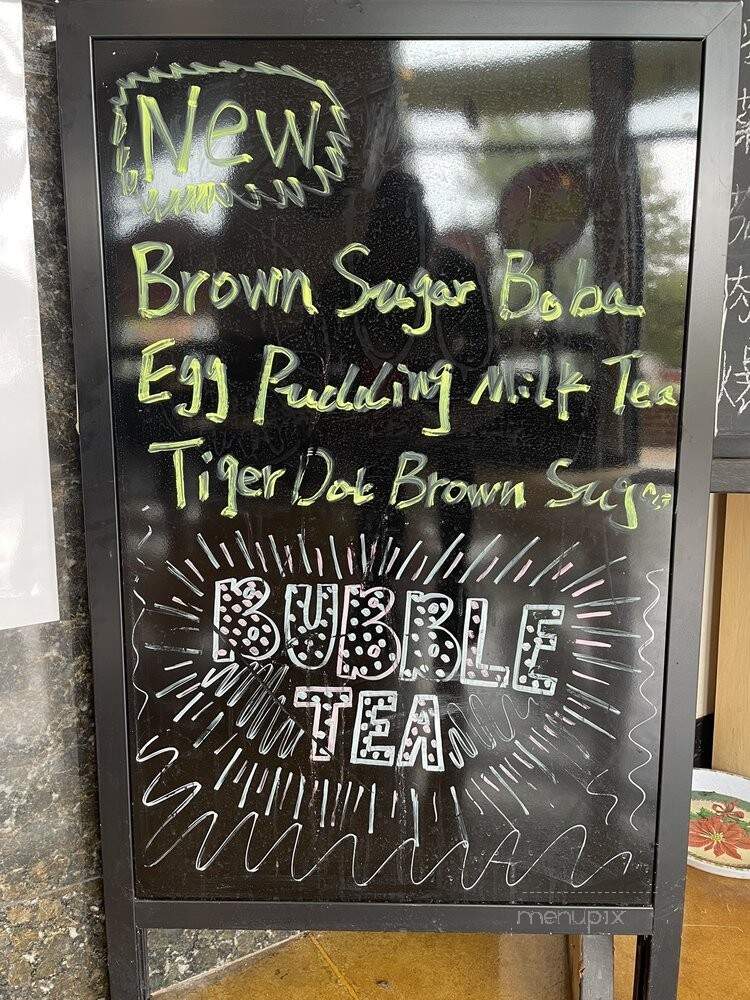 New
Brown Sugar Boba
Egg Pudding Milk Tea
Tiger Dot Brown Sugar
BUBBLE
TEA
menupix